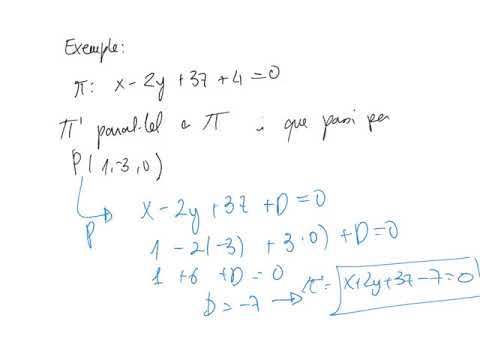 Exemple:
π: x - 2y + 3z + 4 = 0
π' paral·lel a π i que passi per
P(1,-3,0)
P x - 2y + 3z + D = 0
1 - 2(-3) + 3·0) + D = 0
1 + 6 + D = 0
D = -7 → π' = x+2y+3z-7=0